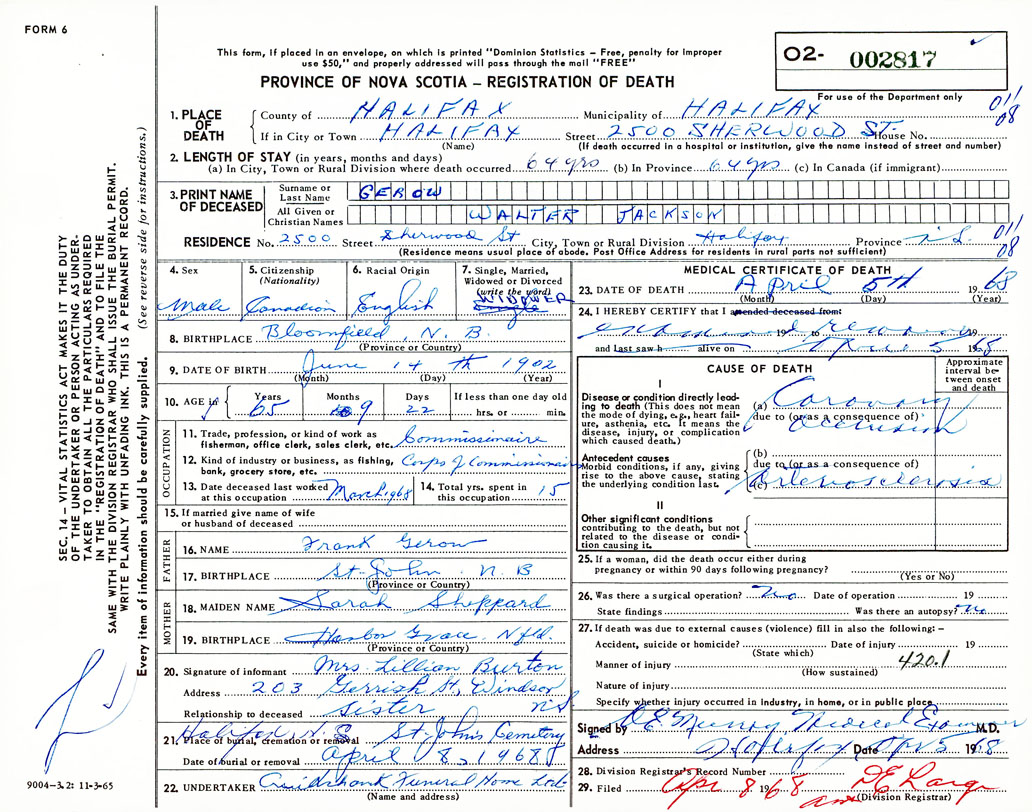 FORM 6
This form, if placed in an envelope, on which is printed "Dominion Statistics – Free, penalty for improper
use $50," and properly addressed will pass through the mail "FREE"
PROVINCE OF NOVA SCOTIA – REGISTRATION OF DEATH
O2- 002817
For use of the Department only
011
08
1. PLACE OF DEATH
County of HALIFAX Municipality of HALIFAX
If in City or Town HALIFAX Street 2500 SHERWOOD ST. House No.
(Name) (If death occurred in a hospital or institution, give the name instead of street and number)
2. LENGTH OF STAY (in years, months and days)
(a) In City, Town or Rural Division where death occurred 64 yrs (b) In Province 64 yrs (c) In Canada (if immigrant)
3. PRINT NAME OF DECEASED
Surname or Last Name GEROW
All Given or Christian Names WALTER JACKSON
RESIDENCE No. 2500 Street Sherwood St City, Town or Rural Division Halifax Province N.S.
011
08
(Residence means usual place of abode. Post Office Address for residents in rural parts not sufficient)
4. Sex
Male
5. Citizenship (Nationality)
Canadian
6. Racial Origin
English
7. Single, Married, Widowed or Divorced (write the word)
WIDOWER
Single
8. BIRTHPLACE Bloomfield, N.B.
(Province or Country)
9. DATE OF BIRTH June 14th 1902
(Month) (Day) (Year)
10. AGE if Years Months Days If less than one day old
65 9 22 hrs. or min.
OCCUPATION
11. Trade, profession, or kind of work as
fisherman, office clerk, sales clerk, etc. Commissionaire
12. Kind of industry or business, as fishing,
bank, grocery store, etc. Corps of Commissionaires
13. Date deceased last worked
at this occupation March 1968
14. Total yrs. spent in
this occupation 15
15. If married give name of wife
or husband of deceased
FATHER
16. NAME Frank Gerow
17. BIRTHPLACE St. John N.B
(Province or Country)
MOTHER
18. MAIDEN NAME Sarah Sheppard
19. BIRTHPLACE Harbor Grace, Nfld.
(Province or Country)
20. Signature of informant Mrs. Lillian Burton
Address 203 Gerrish St, Windsor
NS
Relationship to deceased Sister
21. Place of burial, cremation or removal Halifax N.S. St. Johns Cemetery
Date of burial or removal April 8, 1968
22. UNDERTAKER Cruikshank Funeral Home Ltd.
(Name and address)
MEDICAL CERTIFICATE OF DEATH
23. DATE OF DEATH April 5th 1968
(Month) (Day) (Year)
24. I HEREBY CERTIFY that I attended deceased from:
19 to 19
and last saw h alive on April 5 1968
CAUSE OF DEATH
Approximate interval between onset and death
I
Disease or condition directly leading to death (This does not mean the mode of dying, e.g., heart failure, asthenia, etc. It means the disease, injury, or complication which caused death.)
(a) Coronary
due to (or as a consequence of)
occlusion
Antecedent causes
Morbid conditions, if any, giving rise to the above cause, stating the underlying condition last.
(b)
due to (or as a consequence of)
(c) Arteriosclerosis
II
Other significant conditions
contributing to the death, but not related to the disease or condition causing it.
25. If a woman, did the death occur either during
pregnancy or within 90 days following pregnancy?
(Yes or No)
26. Was there a surgical operation? No Date of operation 19
State findings Was there an autopsy? No
27. If death was due to external causes (violence) fill in also the following: –
Accident, suicide or homicide? Date of injury 19
(State which)
Manner of injury 420.1
(How sustained)
Nature of injury
Specify whether injury occurred in industry, in home, or in public place
Signed by Murray Medical Examiner M.D.
Address Halifax Date Apr 5 1968
28. Division Registrar's Record Number
29. Filed Apr 8 1968
(Division Registrar)
SEC. 14 – VITAL STATISTICS ACT MAKES IT THE DUTY
OF THE UNDERTAKER OR PERSON ACTING AS UNDER-
TAKER TO OBTAIN ALL THE PARTICULARS REQUIRED
IN THE "REGISTRATION OF DEATH" AND TO FILE THE
SAME WITH THE DIVISION REGISTRAR WHO SHALL ISSUE THE BURIAL PERMIT.
WRITE PLAINLY WITH UNFADING INK. THIS IS A PERMANENT RECORD.
Every item of information should be carefully supplied. (See reverse side for instructions.)
9004–3.2: 11-3-65